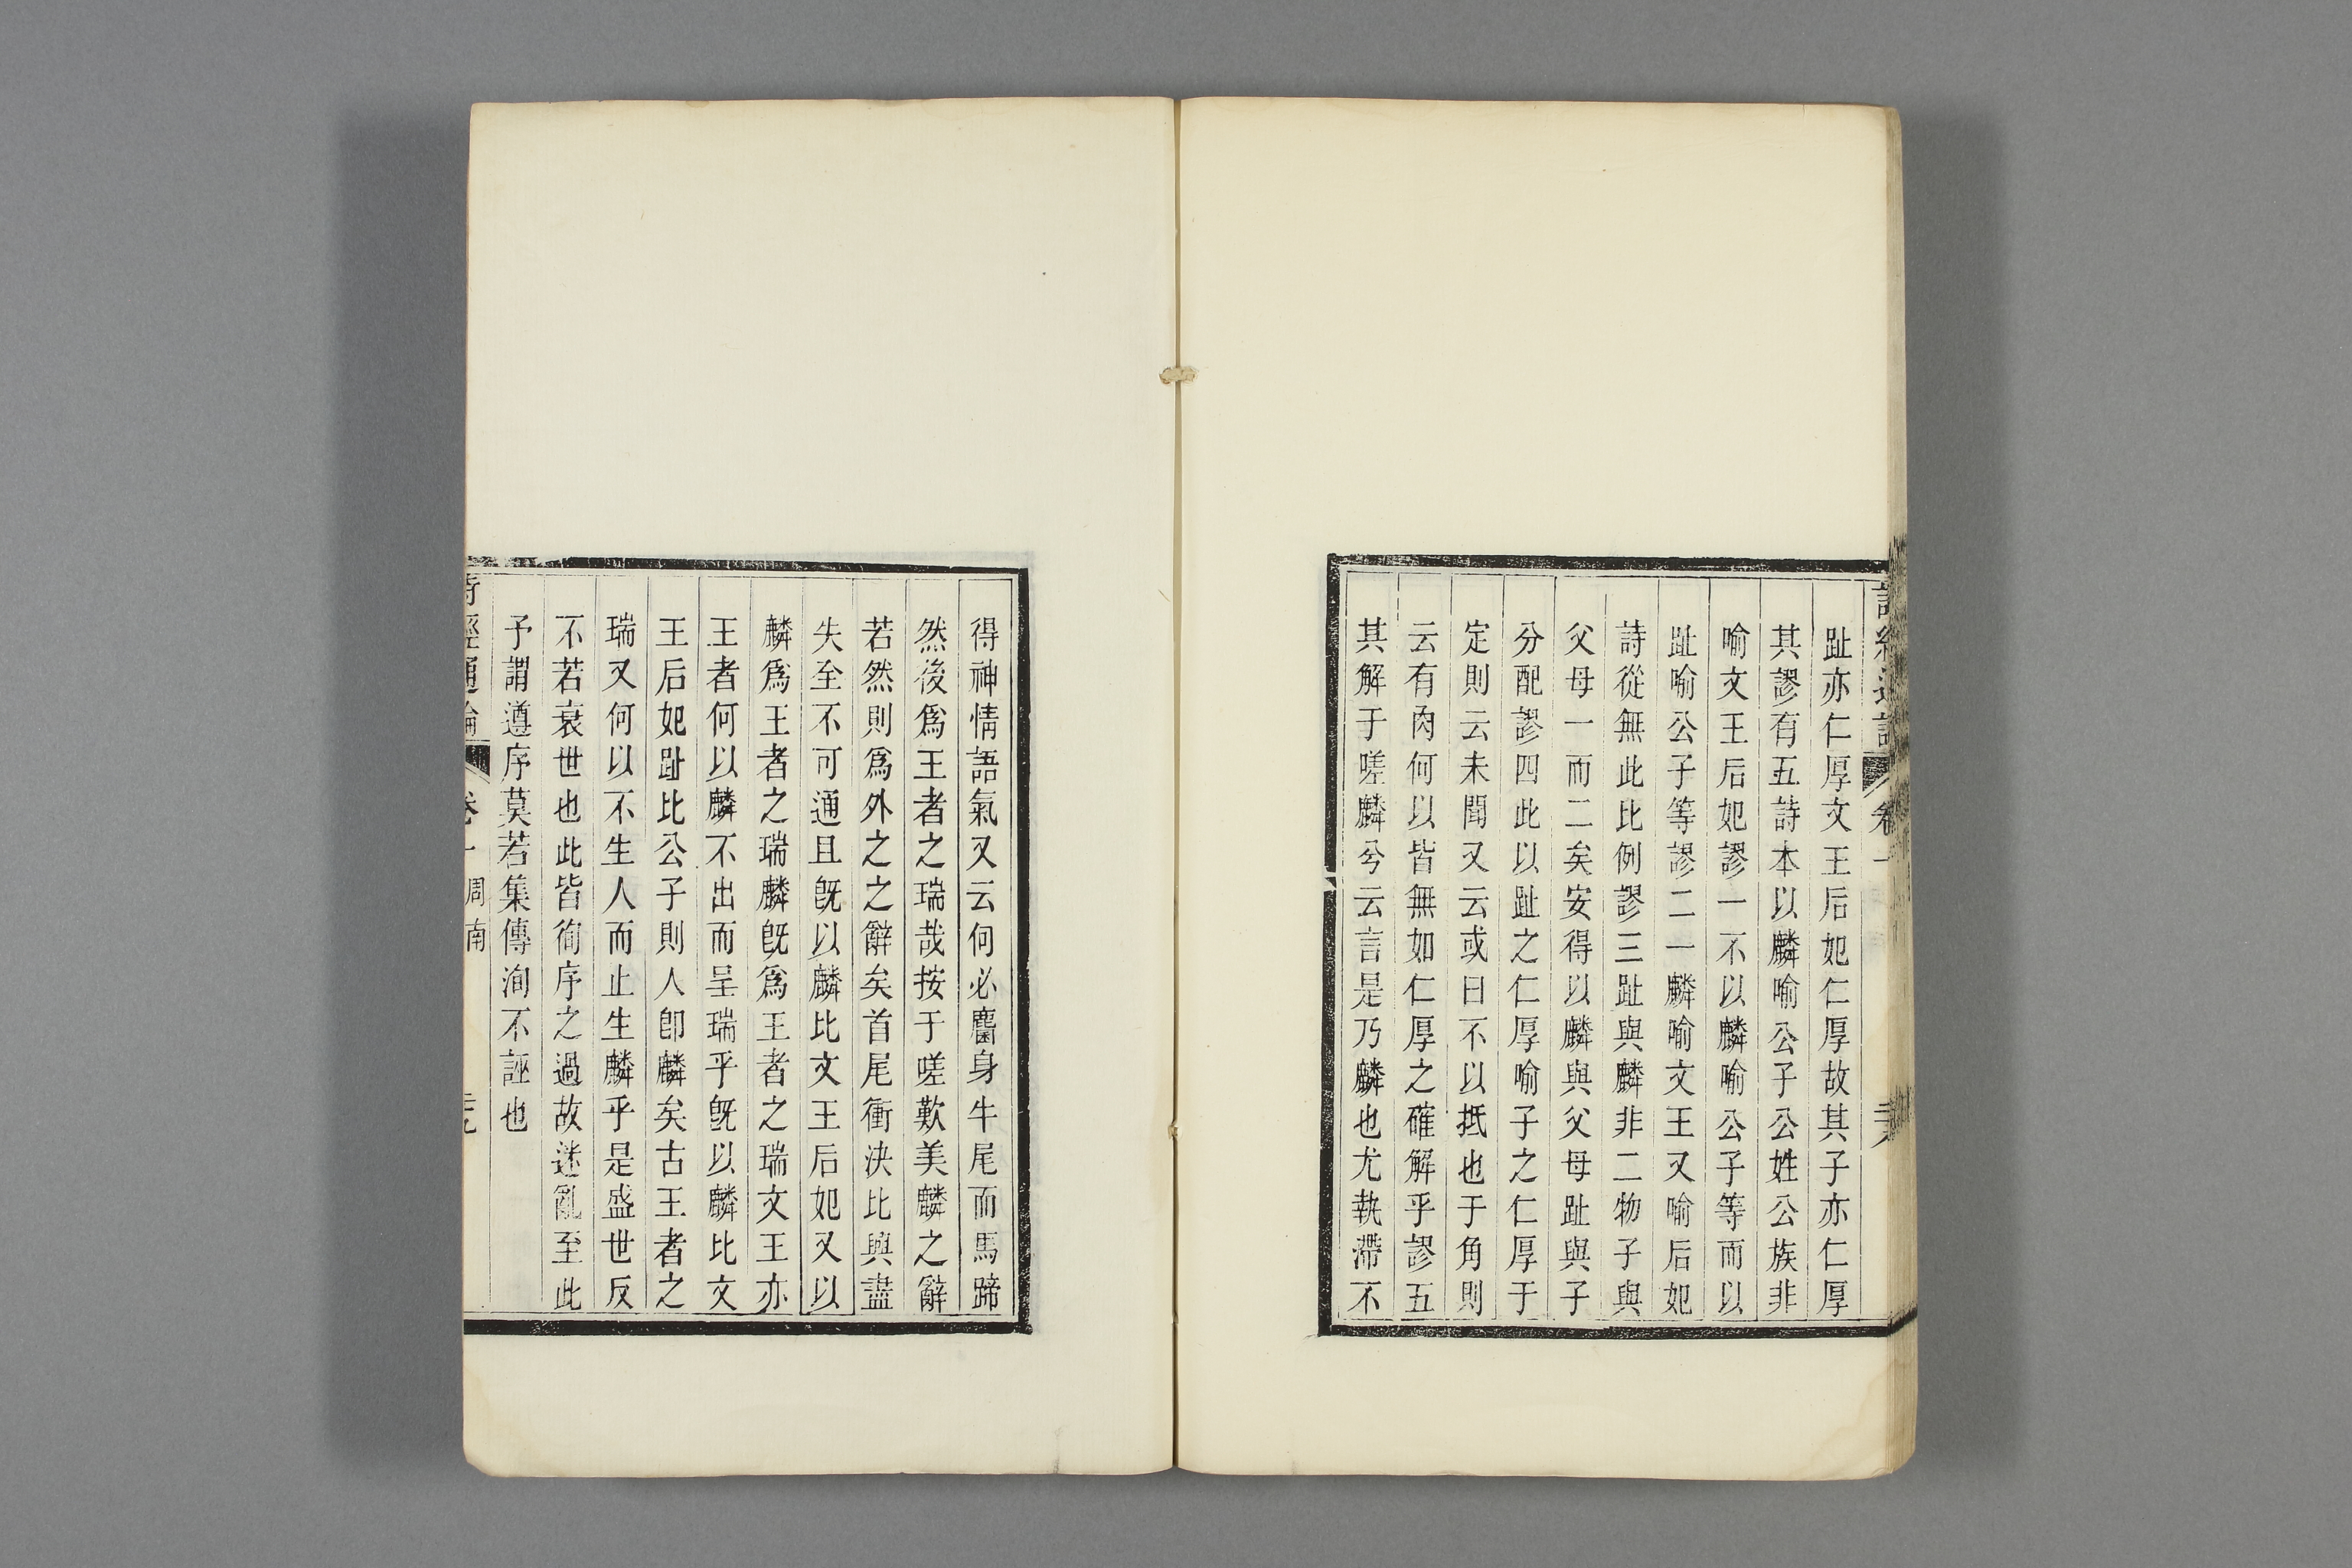 趾亦仁厚文王后妃仁厚故其子亦仁厚
其謬有五詩本以麟喻公子公姓公族非
喻文王后妃謬一不以麟喻公子等而以
趾喻公子等謬二一麟喻文王又喻后妃
詩從無此比例謬三趾與麟非二物子與
父母一而二矣安得以麟與父母趾與子
分配謬四此以趾之仁厚喻子之仁厚于
定則云未聞又云或曰不以抵也于角則
云有肉何以皆無如仁厚之確解乎謬五
其解于嗟麟兮云言是乃麟也尤執滯不
得神情語氣又云何必麕身牛尾而馬蹄
然後爲王者之瑞哉按于嗟歎美麟之辭
若然則爲外之之辭矣首尾衝決比興盡
失至不可通且旣以麟比文王后妃又以
麟爲王者之瑞麟旣爲王者之瑞文王亦
王者何以麟不出而呈瑞乎旣以麟比文
王后妃趾比公子則人卽麟矣古王者之
瑞又何以不生人而止生麟乎是盛世反
不若衰世也此皆徇序之過故迷亂至此
予謂遵序莫若集傳洵不誣也
詩經通論 卷一 周南